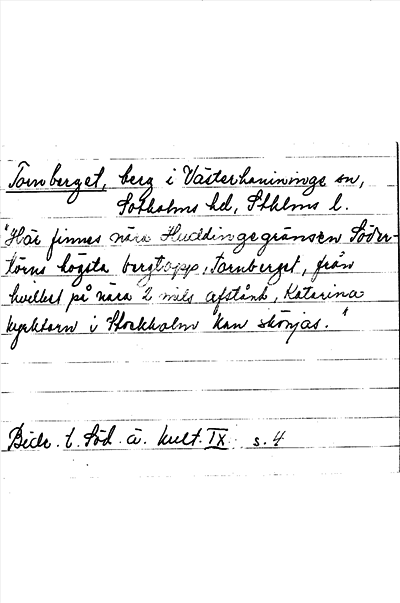 Tornberget, berg i Västerhanninge sn,
Sotholms hd, Sthlms l.
"Här finnes nära Huddingegränsen Söder-
törns högsta bergtopp, Tornberget, från
hvilket på nära 2 mils afstånd, Katarina
kyrktorn i Stockholm kan skönjas."
Bidr. t. Söd. ä. kult. IX s. 4